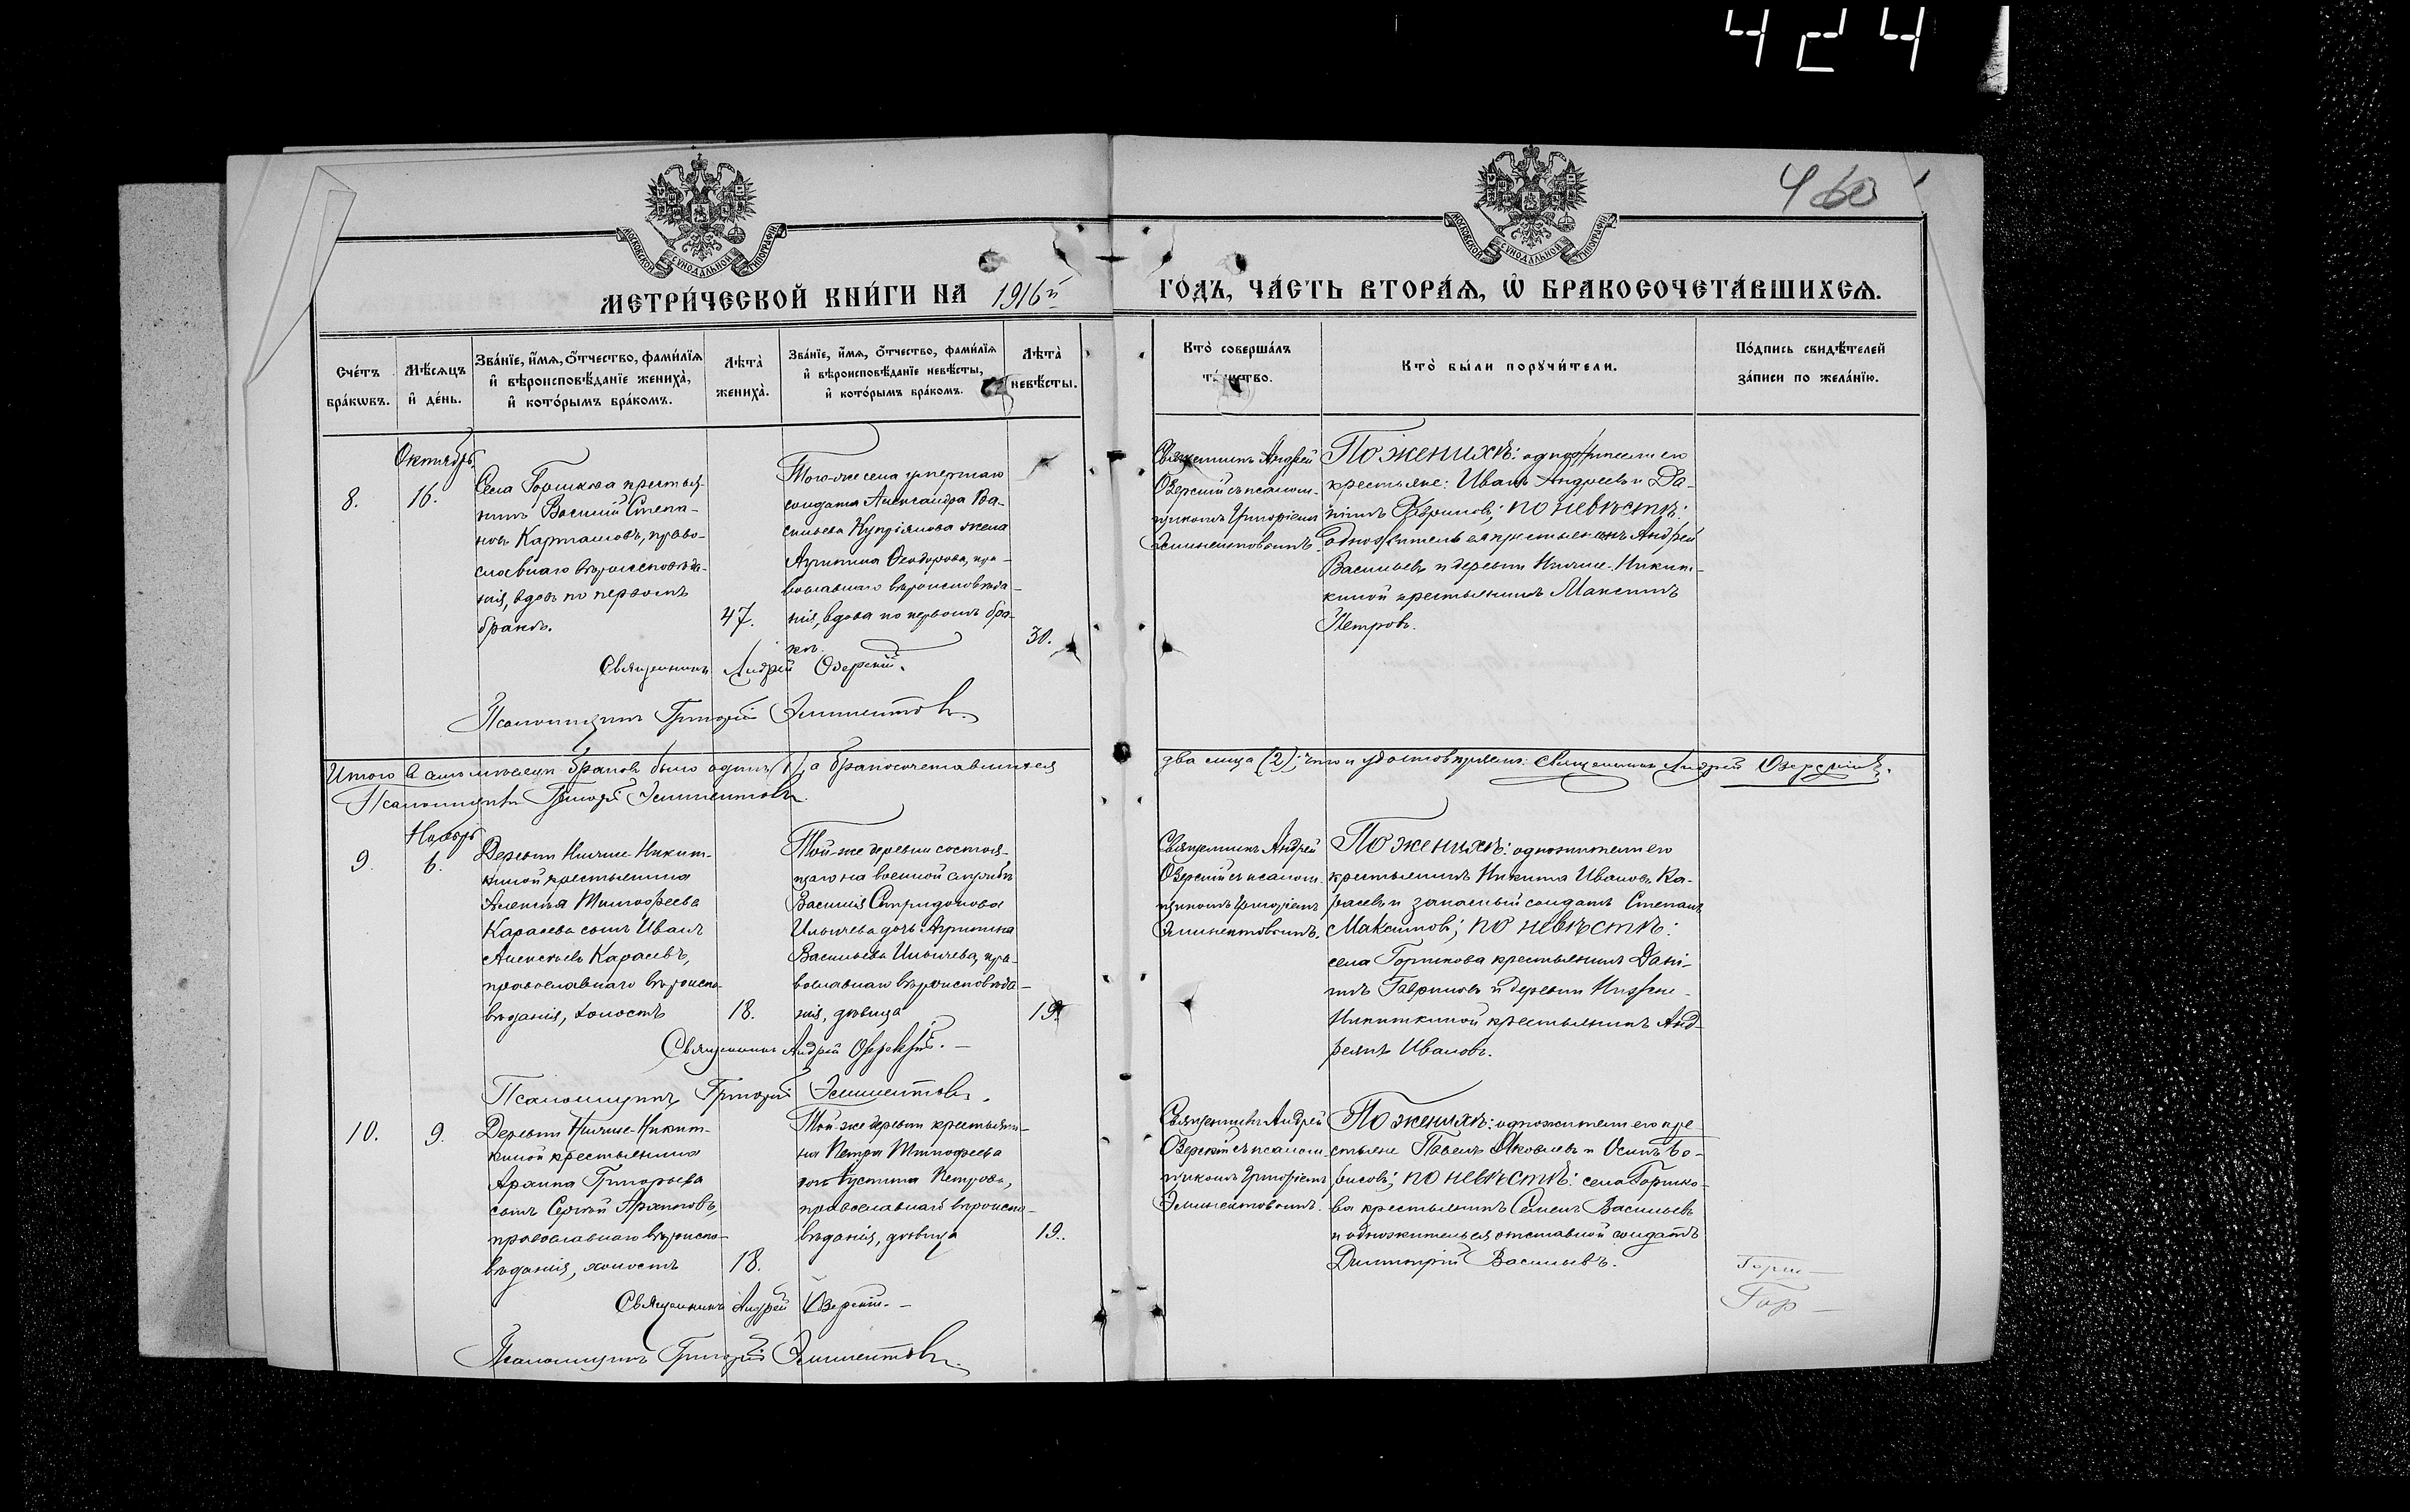 424
460
МОСКОВСКОЙ СѴНОДАЛЬНОЙ ТИПОГРАФІИ
МОСКОВСКОЙ СѴНОДАЛЬНОЙ ТИПОГРАФІИ
МЕТРИ́ЧЕСКОЙ КНИ́ГИ НА 1916й ГО́ДЪ, ЧА́СТЬ ВТОРА́Ѧ, Ѽ БРАКОСОЧЕТА́ВШИХСѦ.
Сче́тъ бра́кѡвъ.
Мѣ́сѧцъ и҆ де́нь.
Зва́нїе, и҆́мѧ, ѻ҆́тчество, фами́лїѧ
и҆ вѣроисповѣ́данїе жениха̀,
и҆ кото́рымъ бра́комъ.
Лѣта̀ жениха̀.
Зва́нїе, и҆́мѧ, ѻ҆́тчество, фами́лїѧ
и҆ вѣроисповѣ́данїе невѣ́сты,
и҆ кото́рымъ бра́комъ.
Лѣта̀ невѣ́сты.
Кто̀ соверша́лъ
та́инство.
Кто̀ бы́ли порꙋчи́тели.
По́дпись свидѣ́телей
за́писи по жела́нїю.
8.
Октябрь.
16.
Села Горшкова крестья-
нинъ Василій Степа-
новъ Карташовъ, право-
славнаго вѣроисповѣда-
нія, вдовъ по первомъ
бракѣ.
47.
Того-же села умершаго
солдата Александра Ва-
сильева Купріянова жена
Агрипина Ѳеодорова, пра-
вославнаго вѣроисповѣда-
нія, вдова по первомъ бра-
кѣ.
30.
Священникъ Андрей
Озерскій съ псалом-
щикомъ Григоріемъ
Элпинентовымъ.
По женихѣ: одножители его
крестьяне: Иванъ Андреевъ и Да-
ніилъ Гавриловъ; по невѣстѣ:
одножитель ея крестьянинъ Андрей
Васильевъ и деревни Нижне-Никит-
киной крестьянинъ Максимъ
Петровъ.
Священникъ Андрей Озерскій.
Псаломщикъ Григорій
Итого въ семъ мѣсяцѣ браковъ было одинъ (1), а бракосочетавшихся два лица (2); что и удостовѣряемъ: Священникъ Андрей Озерскій.
Псаломщикъ Григорій
9.
Ноябрь
6.
Деревни Нижне-Никит-
киной крестьянина
Алексѣя Тимоѳеева
Карасева сынъ Иванъ
Алексѣевъ Карасевъ,
православнаго вѣроиспо-
вѣданія, холостъ
18.
Той-же деревни состоя-
щаго на военной службѣ
Василія Спиридонова
Ильичева дочь Агрипина
Васильева Ильичева, пра-
вославнаго вѣроисповѣда-
нія, дѣвица
19.
Священникъ Андрей
Озерскій съ псалом-
щикомъ Григоріемъ
По женихѣ: одножители его
крестьянинъ Никита Ивановъ Ка-
расевъ и запасный солдатъ Степанъ
Максимовъ; по невѣстѣ:
села Горшкова крестьянинъ Дані-
илъ Гавриловъ и деревни Нижне-
Никиткиной крестьянинъ Анд-
реянъ Ивановъ.
Священникъ Андрей Озерскій.
Псаломщикъ Григорій
10.
9.
Деревни Нижне-Никит-
киной крестьянина
Архипа Григорьева
сынъ Сергѣй Архиповъ,
православнаго вѣроиспо-
вѣданія, холостъ
18.
Той-же деревни крестьяни-
на Петра Тимоѳеева
дочь Устина Петрова,
православнаго вѣроиспо-
вѣданія, дѣвица
19.
Священникъ Андрей
Озерскій съ псалом-
щикомъ Григоріемъ
По женихѣ: одножители его кре-
стьяне Павелъ Яковлевъ и Осипъ Бо-
рисовъ; по невѣстѣ: села Горшко-
ва крестьянинъ Семенъ Васильевъ
и одножитель ея отставной солдатъ
Димитрій Васильевъ.
Священникъ Андрей Озерскій.
Псаломщикъ Григорій
Горш
Гор